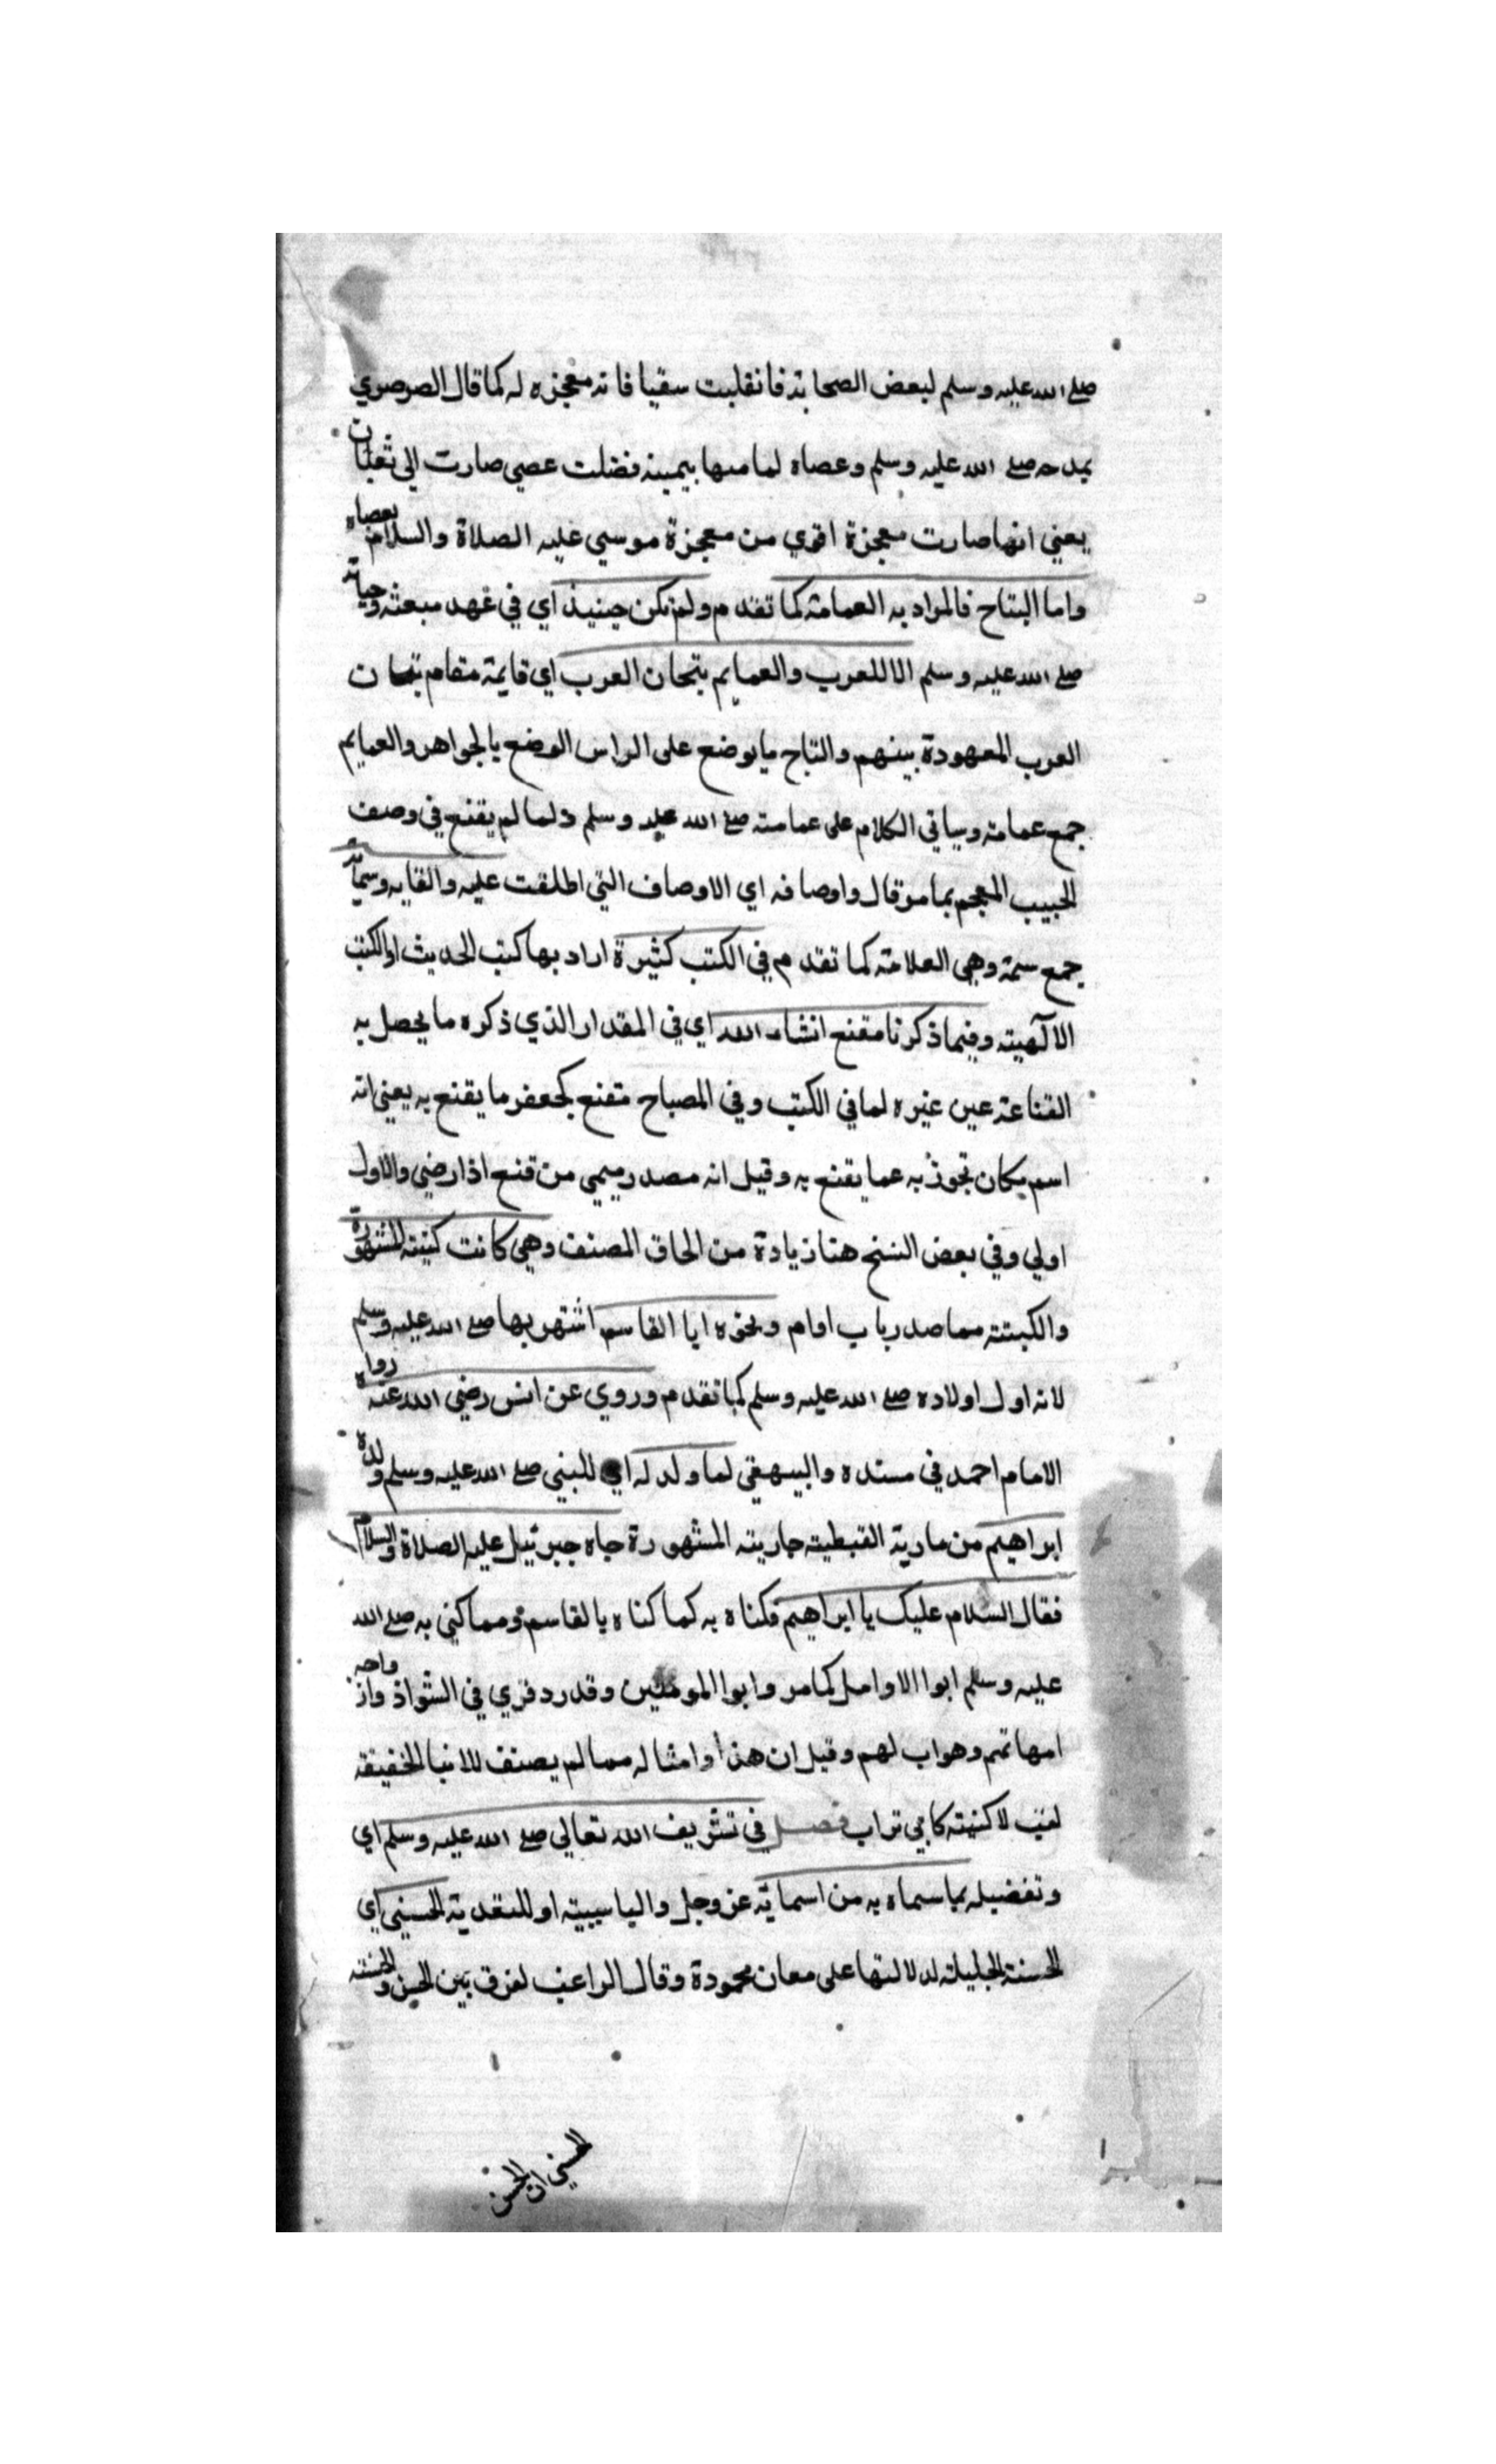 صلى الله عليه وسلم لبعض الصحابة فانقلبت سقيا فانه معجزه له كما قال الصرصري
يمدحه صلى الله عليه وسلم وعصاه لما مسها بيمينه فضلت عصي صارت الي ثعبان
يعني انها صارت معجزة اقوي من معجزة موسي عليه الصلاة والسلام بعصاه
واما التاج فالمراد به العمامة كما تقدم ولم تكن حينيذ اي في عهد مبعثه وحياته
صلى الله عليه وسلم الا للعرب والعمايم تيجان العرب اي قايمة مقام تيجان
العرب المعهودة بينهم والتاج ما يوضع على الراس المرصع بالجواهر والعمايم
جمع عمامة وسياتي الكلام على عمامته صلى الله عليه وسلم ولما لم يقنع في وصف
الحبيب المعجم بما مر قال واوصافه اي الاوصاف التي اطلقت عليه والقابه وسماته
جمع سمة وهي العلامة كما تقدم في الكتب كثيرة اراد بها كتب الحديث او الكتب
الالٓهية وفيما ذكرنا مقنع انشاء الله اي في المقدار الذي ذكره ما يحصل به
القناعة عين غيره لما في الكتب وفي المصباح مقنع كجعفر ما يقنع به يعني انه
اسم مكان تجوز به عما يقنع به وقيل انه مصدر ميمي من قنع اذا رضي والاول
اولي وفي بعض النسخ هنا زيادة من الحاق المصنف وهي كانت كنيته المشهورة
والكنية مما صدر باب او ام ونحوه ابا القاسم اشتهر بها صلى الله عليه وسلم
لانه اول اولاده صلى الله عليه وسلم كما تقدم وروي عن انس رضي الله عنه رواه
الامام احمد في مسنده والبيهقي لما ولد له اي للنبي صلى الله عليه وسلم ولده
ابراهيم من مارية القبطية جاريته المشهورة جاه جبرئيل عليه الصلاة والسلام
فقال السلام عليك يا ابراهيم فكناه به كما كناه بالقاسم ومما كني به صلى الله
عليه وسلم ابوا الارامل كما مر وابوا المومنين وقد رد قري في الشواذ وازواجه
امهاتهم وهو اب لهم وقيل ان هذا وامثاله مما لم يصنف للانبيا الحقيقة
لقب لا كنية كابي تراب فصل في تشريف الله تعالي صلى الله عليه وسلم اي
وتفضيله بما سماه به من اسمايه عز وجل والبا سببية او للتعدية الحسني اي
الحسنة الجليلة لدلالتها على معان محمودة وقال الراغب الفرق بين الحسن والحسنة
الحسني ان الحسن